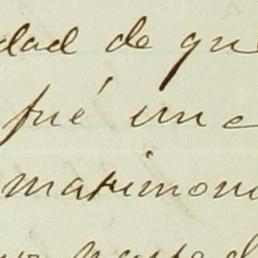 dad de que
fué una
matrimoni